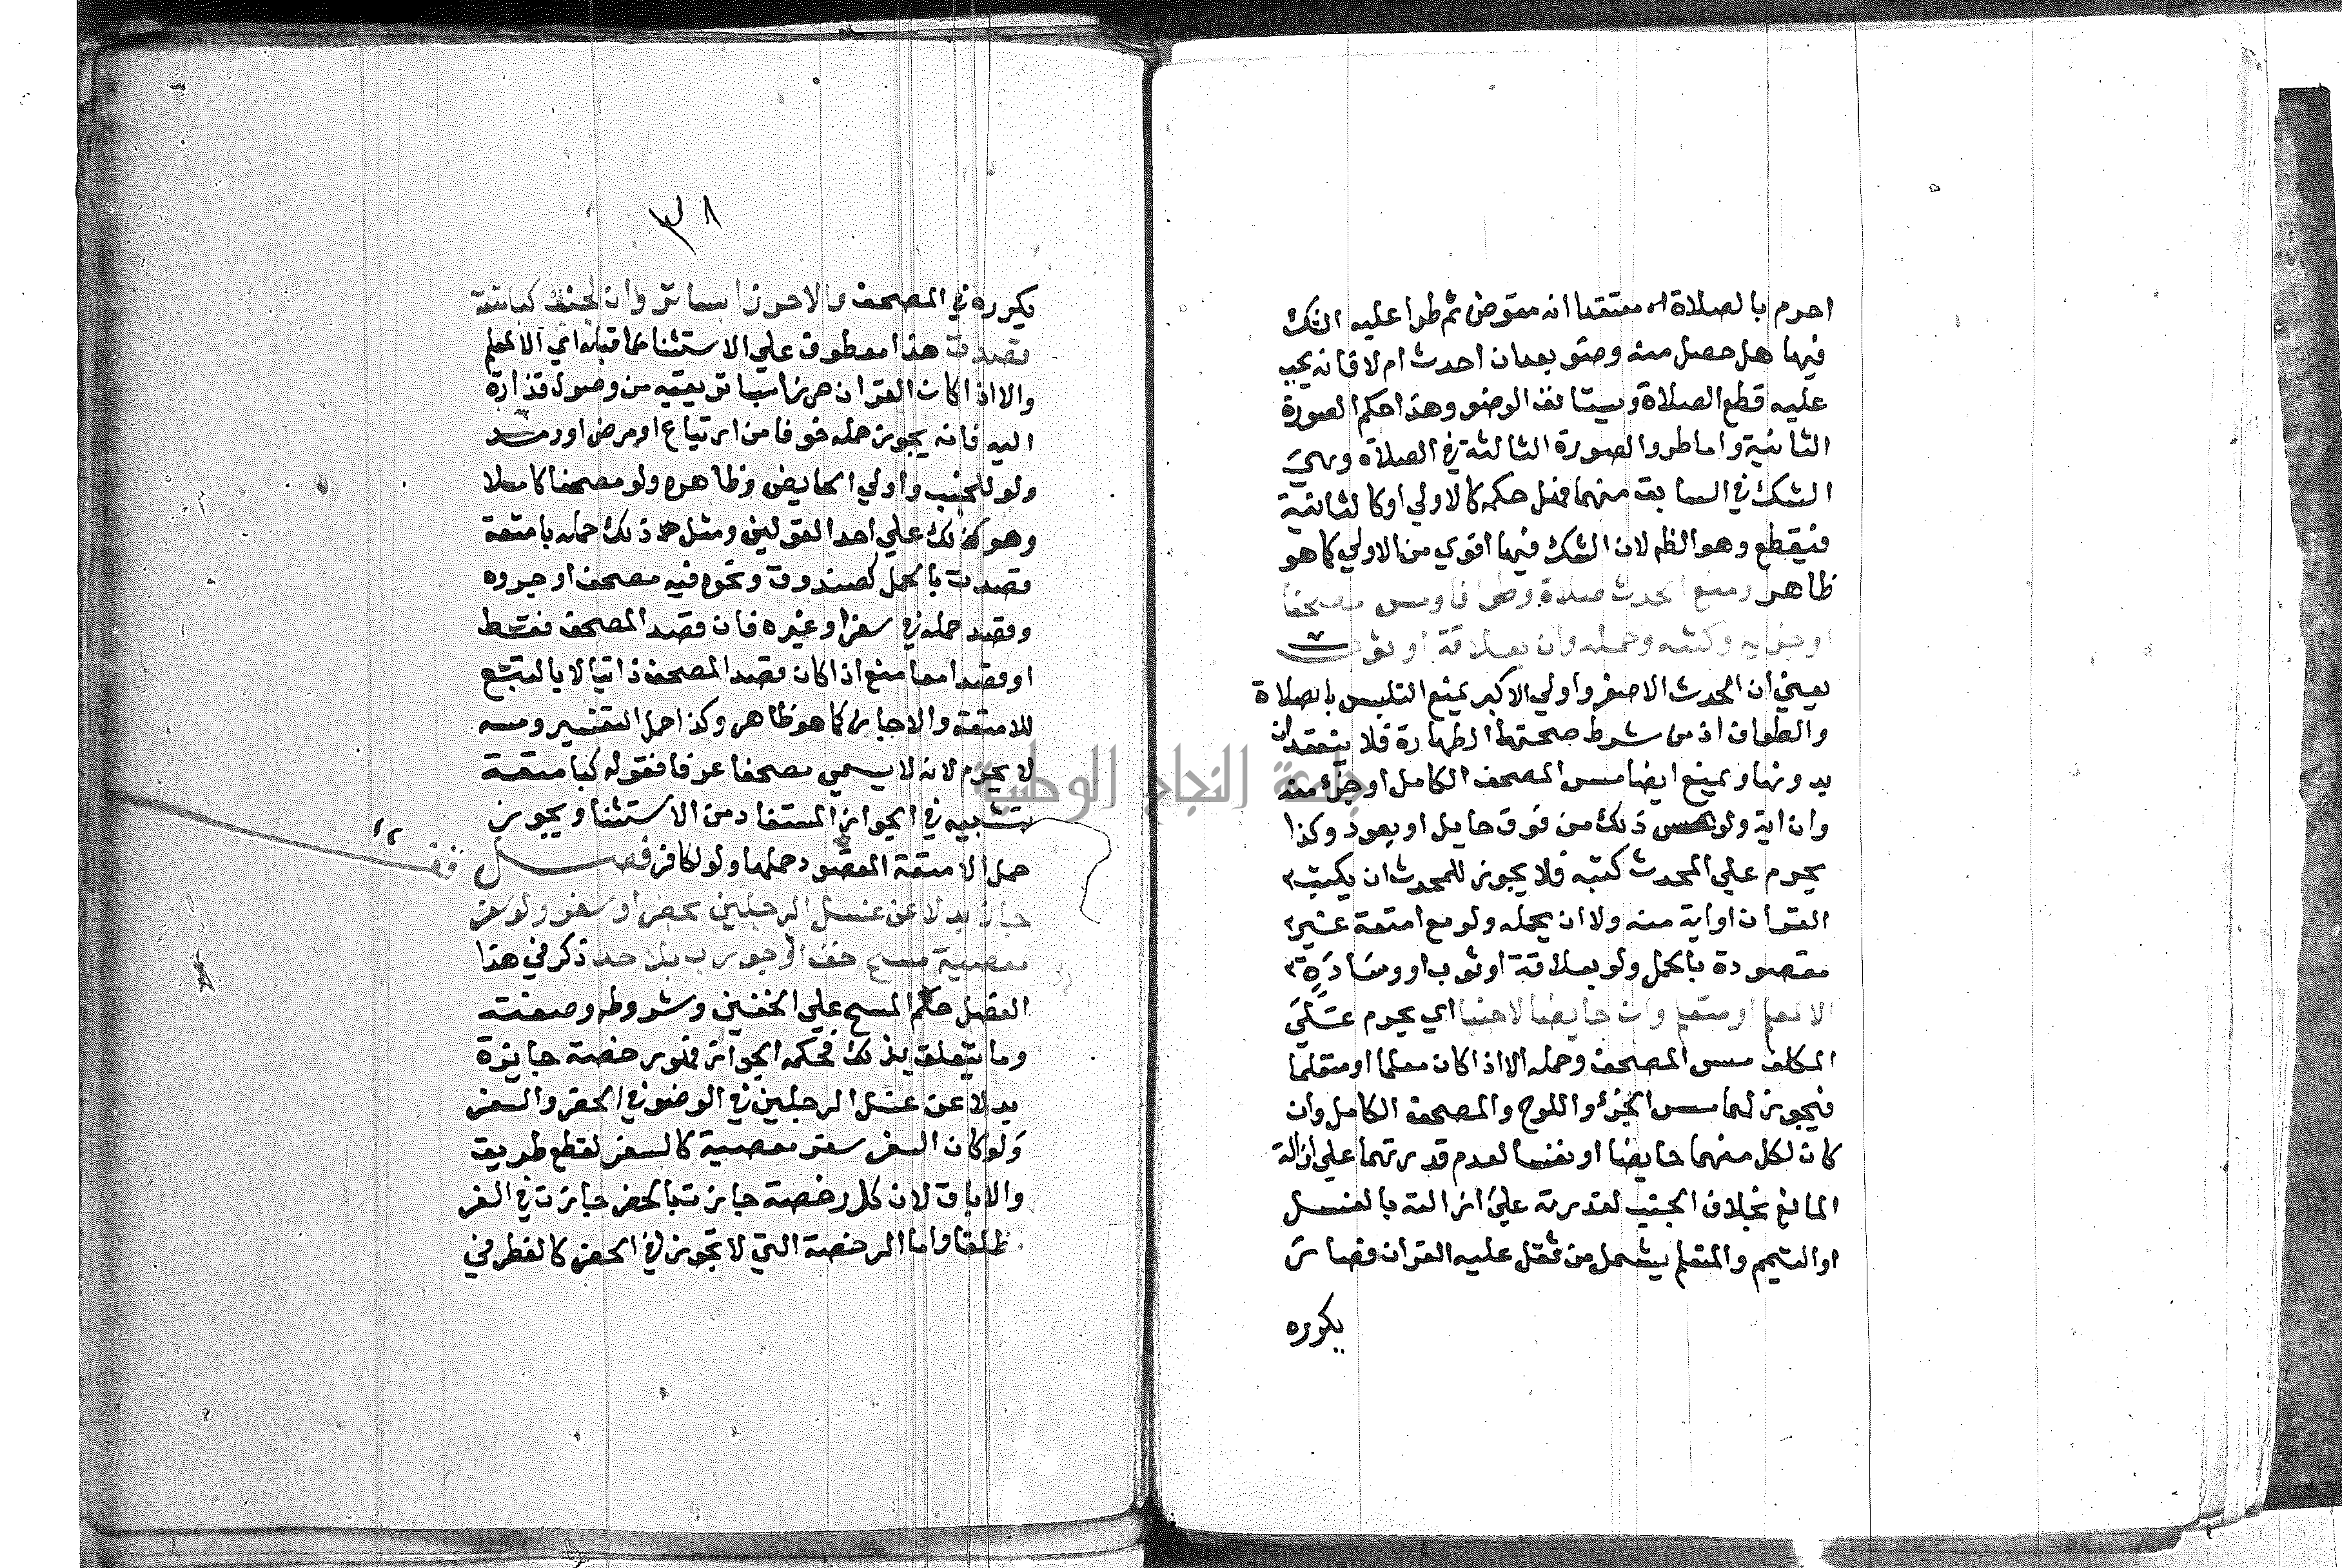 احرم بالصلاة معتقدا انه متوض ثم طرا عليه الشك
فيها هل حصل منه وضو بعد ان احدث ام لا فانه يجب
عليه قطع الصلاة ويستانف الوضو وهذا حكم الصورة
الثانية واما طرو الصورة الثالثة في الصلاة وهي
الشك في السابق منهما فهل حكمه كالاولي او كالثانية
فيقطع وهو الظ لان الشك فيها اقوي من الاولي كما هو
ظاهر ومنع الحدث صلاة وطوافا ومس مصحف
او جزايه وكتبه وحمله وان بعلاقة او ثوب
يعني ان الحدث الاصغر واولي الاكبر يمنع التلبس بالصلاة
والطواف اذ من شرط صحتهما الطهارة فلا ينعقدان
بدونها ويمنع ايضا مس المصحف الكامل او جزء منه
وان اية ولو مس ذلك من فوق حايل او بعود وكذا
يحرم علي المحدث كتبه فلا يجوز للمحدث ان يكتب
القران او اية منه ولا ان يحمله ولو مع امتعة غير
مقصودة بالحمل ولو بعلاقة او ثوب او وسادة
الا لمعلم او متعلم وان حايضا لا جنبا اي يحرم علي
المكلف مس المصحف وحمله الا اذا كان معلما او متعلما
فيجوز لهما مس الجزء واللوح والمصحف الكامل وان
كان لكل منهما حايضا او نفسا لعدم قدرتهما علي ازالة
المانع بخلاف الجنب لقدرته علي ازالته بالغسل
او التيمم والمتعلم يشمل من ثقل عليه القران فصار
يكرره
٣٨
يكرره في المصحف والاحرز بساتر وان لجنب كبامتعة
قصدت هذا معطوف علي الاستثنا مما قبله اي الا لمعلم
والا اذا كان القران حرزا بساتر يقيه من وصول قذارة
اليه فانه يجوز حمله خوفا من ارتياع او مرض او رمد
ولو للجنب واولي الحايض وظاهره ولو مصحفا كاملا
وهو كذلك علي احد القولين ومثل ذلك حمله بامتعة
قصدت بالحمل كصندوق ونحوه فيه مصحف او جزوه
وقصد حمله في سفر او غيره فان قصد المصحف فقط
او قصدا معا منع اذا كان قصد المصحف ذاتيا لا بالتبع
للامتعة والا جاز كما هو ظاهر وكذا حمل التفسير ومسه
لا يحرم لانه لا يسمي مصحفا عرفا فقوله كبامتعة
تشبيه في الجواز المستفاد من الاستثنا ويجوز
حمل الامتعة المقصود حملها ولو لكافر فصل
جاز بدلا عن غسل الرجلين بحضر او سفر ولو سفر
معصية مسح خف او جورب بلا حد ذكر في هذا
الفصل حكم المسح علي الخفين وشروطه وصفته
وما يتعلق بذلك فحكمه الجواز فهو رخصة جايزة
بدلا عن غسل الرجلين في الوضو في الحضر والسفر
ولو كان السفر سفر معصية كالسفر لقطع طريق
والاباق لان كل رخصة جازت بالحضر جازت في السفر
مطلقا واما الرخصة التي لا تجوز في الحضر كالفطر في
جامعة النجاح الوطنية